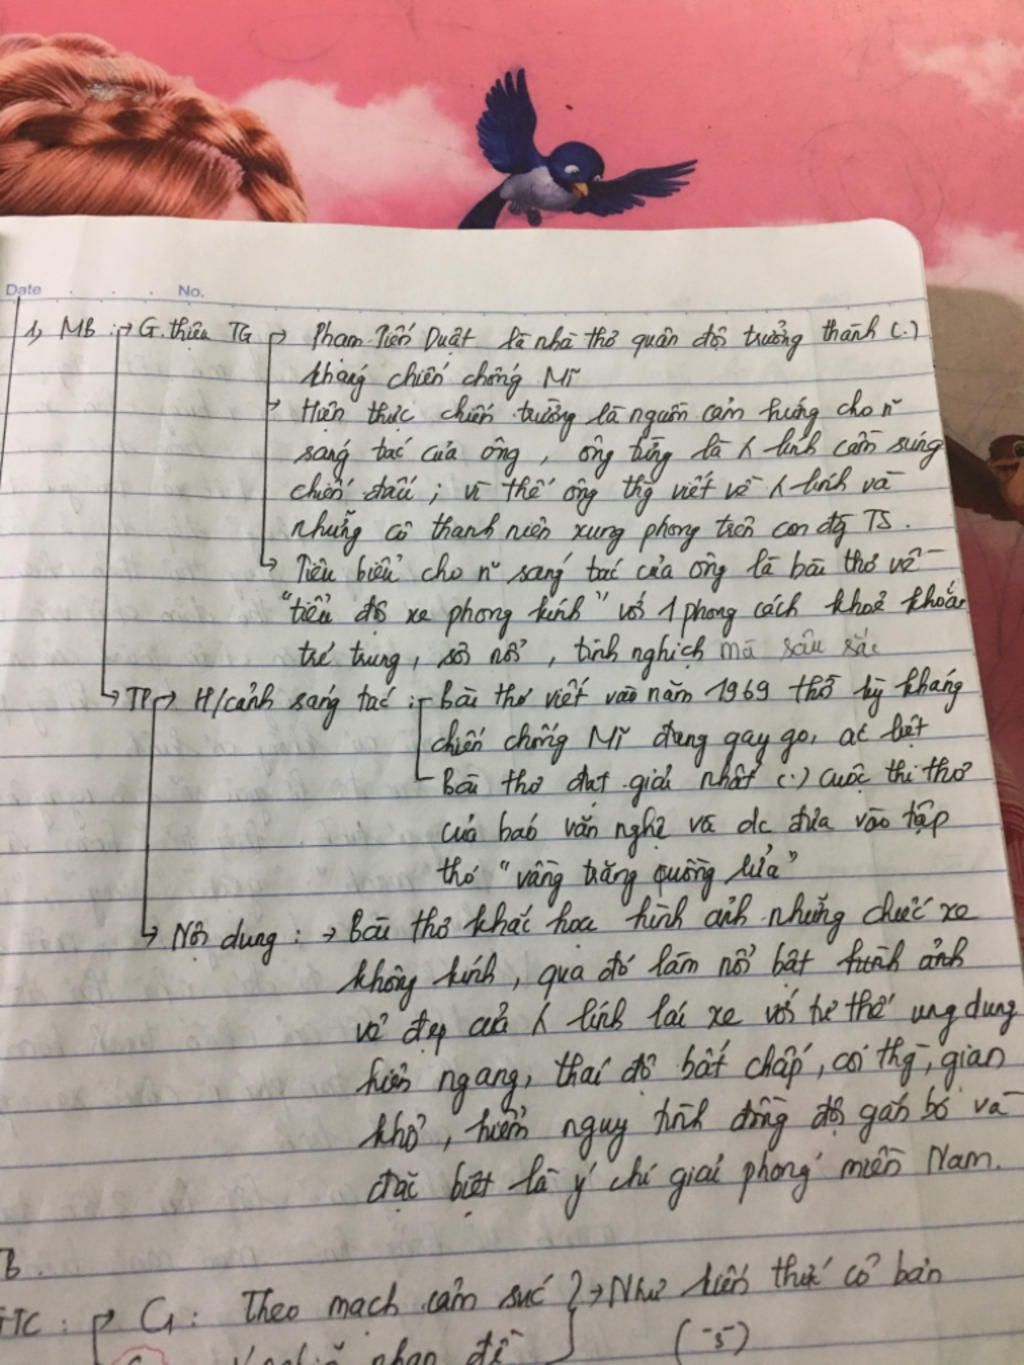 Date . . . No.
1, MB :→ G.thiệu TG → Phạm Tiến Duật là nhà thơ quân đội trưởng thành (.)
kháng chiến chống Mĩ
→ Hiện thực chiến trường là nguồn cảm hứng cho n~
sáng tác của ông, ông từng là λ lính cầm súng
chiến đấu; vì thế ông thg viết về λ lính và
những cô thanh niên xung phong trên con đg TS.
→ Tiêu biểu cho n~ sáng tác của ông là bài thơ về
"tiểu đội xe phong kính" với 1 phong cách khoẻ khoắn
trẻ trung, sôi nổi, tinh nghịch mà sâu sắc
→ TP → H/cảnh sáng tác : bài thơ viết vào năm 1969 thời kỳ kháng
chiến chống Mĩ đang gay go, ác liệt
- Bài thơ đạt giải nhất (.) cuộc thi thơ
của báo văn nghệ và đc đưa vào tập
thơ "vầng trăng quầng lửa"
→ Nội dung : → Bài thơ khắc họa hình ảnh những chiếc xe
không kính, qua đó làm nổi bật hình ảnh
vẻ đẹp của λ lính lái xe với tư thế ung dung
hiên ngang, thái độ bất chấp, coi thg, gian
khổ, hiểm nguy tình đồng đội gắn bó và
đặc biệt là ý chí giải phóng miền Nam.
B.
TC : → C1 : Theo mạch cảm xúc } → Như kiến thức cơ bản
nhan đề (-5-)